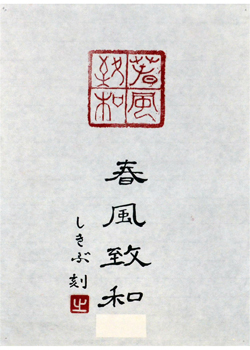 春風致和
春風致和
しきぶ刻